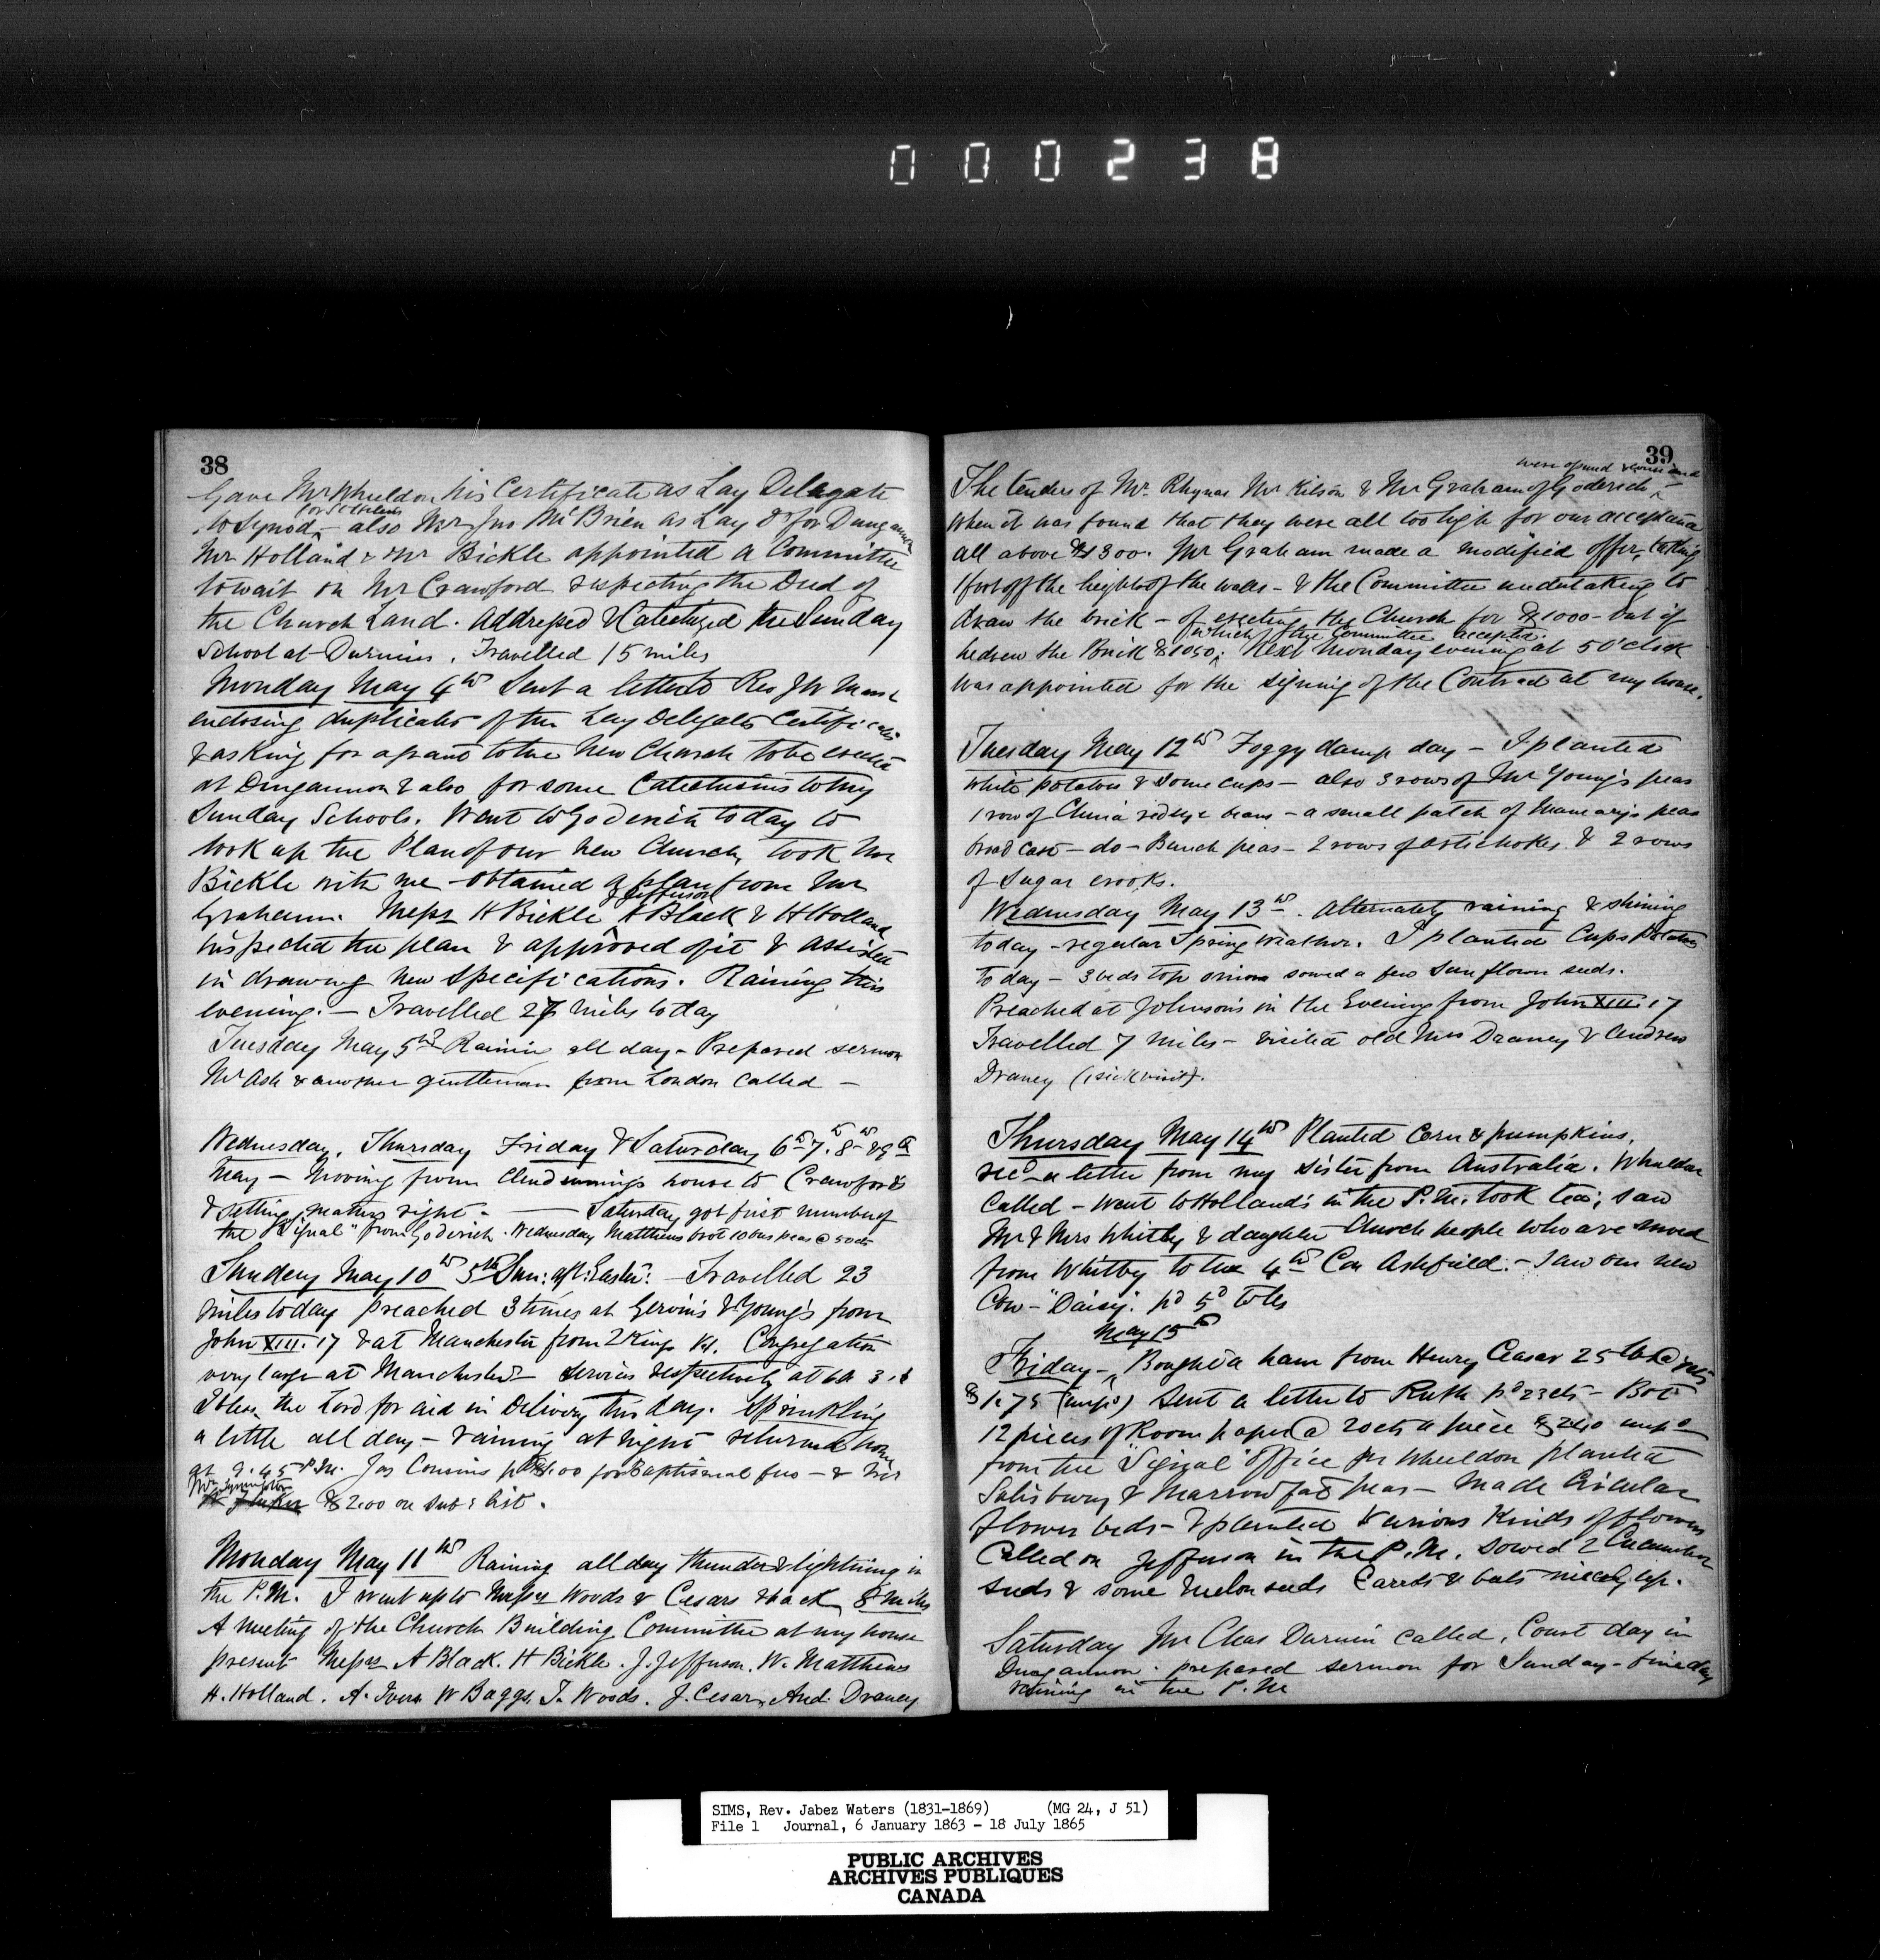 000238
38
Gave Mr Wheeldon his Certificate as Lay Delegate
for St Helens
to Synod, - also Mr Jno McBrien as Lay D for Dungannon
Mr Holland & Mr Bickle appointed a Committee
to wait on Mr Crawford respecting the Deed of
the Church Land. Addressed & Catechized the Sunday
School at Durnins. Travelled 15 miles
Monday May 4th Sent a letter to Rev J W Marsh
enclosing duplicates of the Lay Delegates Certificates
& asking for a grant to the New Church to be erected
at Dungannon & also for some Catechisms to my
Sunday Schools. Went to Goderich to day to
look up the Plan of our new Church, took Mr
Bickle with me - obtained a plan from Mr
J Jefferson
Graham. Messrs H Bickle, A Black & H Holland
inspected the plan & approved of it & assisted
in drawing new specifications. Raining this
evening. - Travelled 27 miles to day
Tuesday May 5th Rainin all day - Prepared sermon
Mr Ash & another gentleman from London called -
Wednesday, Thursday Friday & Saturday 6th 7th 8th & 9th
May - Moving from Clendinnings house to Crawford's
& setting matters right. - Saturday got first number of
the "Signal" from Goderich. Wednesday Matthews brot 10 bus peas @ 50 cts
Sunday May 10th 5th Sun: aft: Easter. - Travelled 23
miles today preached 3 times at Gervin's & Young's from
John XIII.17 & at Manchester from 2 Kings Congregation
very large at Manchester - services respectively at
I bless the Lord for aid in Delivery this day. Sprinkling
a little all day - raining at night returned home
at 9.45 P.M. Jas Cousins pd $1.00 for Baptismal fees - &
Wm Symington
$2.00 on sub: list.
Monday May 11th Raining all day thunder & lightning in
the P.M. I went up to Messrs Woods & Cesars & back 8 miles
A meeting of the Church Building Committee at my house
present Messrs A Black. H Bickle. J. Jefferson. W. Matthews
H. Holland. A. Ivers W Baggs, T. Woods. J. Cesar, And. Draney
39
were opened & examined
The tenders of Mr. Rhynas Mr Kitson & Mr Graham of Goderich -
When it was found that they were all too high for our acceptance
all above $1300. Mr Graham made a modified offer, taking
1 foot off the height of the walls - & the Committee undertaking to
draw the brick - of erecting the Church for $1000 - but if
which the Committee accepted.
he drew the Brick $1050. Next Monday evening at 5 O'clock
was appointed for the signing of the Contract at my house.
Tuesday May 12th Foggy damp day - I planted
white potatoes & some cups - also 3 rows of Mr Young's peas
1 row of China redeye beans - a small patch of peas
broad cast - do - Bunch peas - 2 rows of artichokes & 2 rows
of Sugar crooks.
Wednesday May 13th. Alternately raining & shining
to day - regular Spring weather. I planted Cups Potatoes
to day - 3 beds top onions sowed a few sun flower seeds.
Preached at Johnson's in the Evening from John XIII.17
Travelled 7 miles - visited old Mrs Draney & Andrew
Draney (1 sick visit).
Thursday May 14th Planted Corn & pumpkins,
recd a letter from my sister from Australia. Wheeldon
called - Went to Holland's in the P.M. took tea; saw
Mr & Mrs Whitby & daughter Church people who are moved
from Whitby to the 4th Con Ashfield. - Saw our new
Cow - "Daisy". pd 5d tolls
May 15th
Friday -, Bought a ham from Henry Ceasar 25 lbs @ 7 cts
$1.75 (unpd) Sent a letter to Ruth pd 23 cts - Bot
12 pieces of Room paper @ 20 cts a piece $2.40 unpd
from the "Signal" Office Mr Wheeldon planted
Salisbury & Marrowfat peas - Made Circular
flower beds - & planted various kinds of flowers
Called on Jefferson in the P.M. Sowed 2 Cucumber
seeds & some melon seeds Carrots & oats nicely up.
Saturday Mr Chas Durnin called, Court day in
Dungannon. prepared sermon for Sunday - fine day
raining in the P.M
SIMS, Rev. Jabez Waters (1831-1869) (MG 24, J 51)
File 1 Journal, 6 January 1863 - 18 July 1865
PUBLIC ARCHIVES
ARCHIVES PUBLIQUES
CANADA